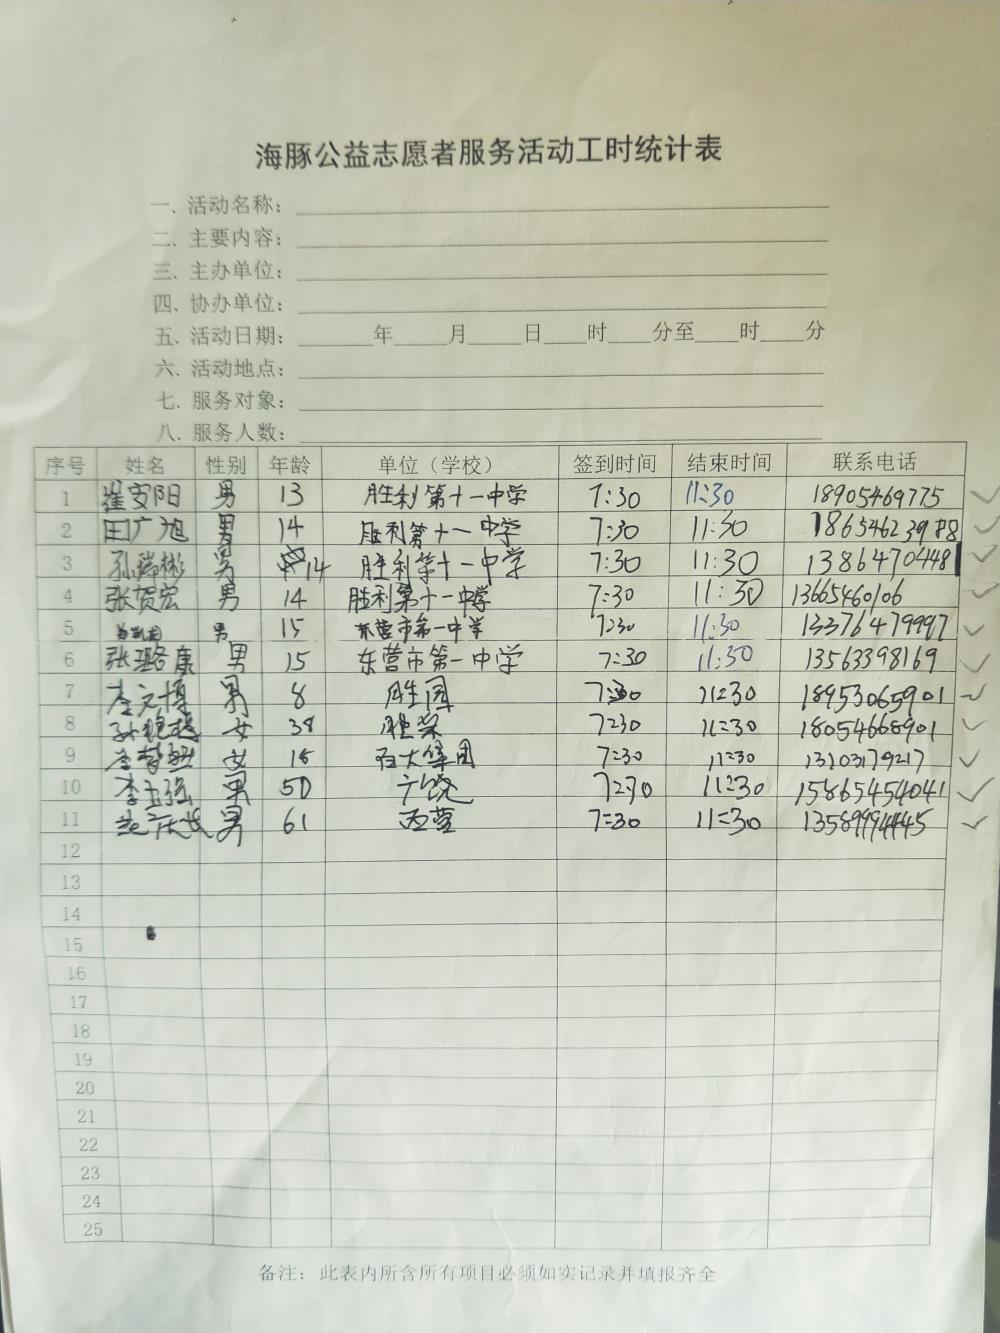 海豚公益志愿者服务活动工时统计表
一、活动名称：
二、主要内容：
三、主办单位：
四、协办单位：
五、活动日期： 年 月 日 时 分至 时 分
六、活动地点：
七、服务对象：
八、服务人数：
序号 姓名 性别 年龄 单位（学校） 签到时间 结束时间 联系电话
1 崔安阳 男 13 胜利第十一中学 7:30 11:30 18905469775
2 田广旭 男 14 胜利第十一中学 7:30 11:30 18654623988
3 孙瑞彬 男 14 胜利第十一中学 7:30 11:30 13864704481
4 张贺宏 男 14 胜利第十一中学 7:30 11:30 13665460106
5 男 15 东营市第一中学 7:30 11:30 13376479997
6 张璐康 男 15 东营市第一中学 7:30 11:30 13563398169
7 李文博 男 8 胜利园 7:30 11:30 18953065901
8 女 38 胜采 7:30 11:30 18054668901
9 女 7:30 11:30 13103179217
10 李玉强 男 50 广饶 7:30 11:30 15865454041
11 男 61 西营 7:30 11:30 13589994445
12
13
14
15
16
17
18
19
20
21
22
23
24
25
备注：此表内所含所有项目必须如实记录并填报齐全